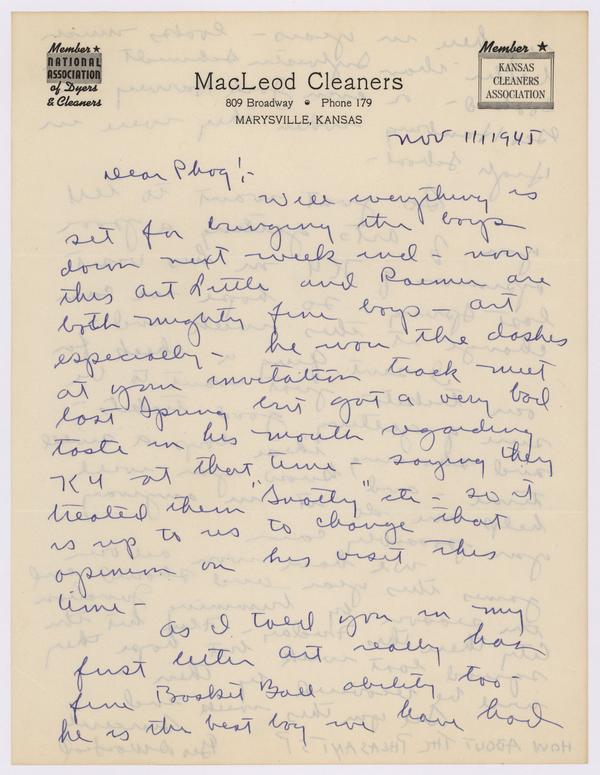 Member ★
NATIONAL
ASSOCIATION
of Dyers
& Cleaners
Member ★
KANSAS
CLEANERS
ASSOCIATION
MacLeod Cleaners
809 Broadway • Phone 179
MARYSVILLE, KANSAS
Nov 11/1945
Dear Phog!-
Will everything is
set for bringing the boys
down next week end - now
this Art Little and Raemer are
both mighty fine boys - art
especially - he won the dashes
at your invitation track meet
last Spring but got a very bad
taste in his mouth regarding
KU at that time - saying they
treated them "Snotty" etc - so it
is up to us to change that
opinion on his visit this
time -
As I told you in my
first letter Art really has
fine Basket Ball ability too -
he is the best boy we have had
HOW ABOUT THE PHEASANTS?